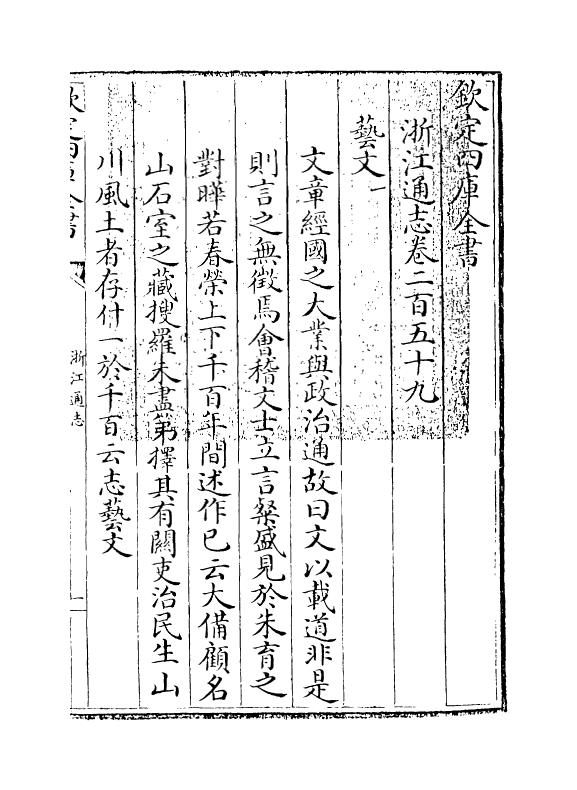 欽定四庫全書
浙江通志卷二百五十九
藝文一
文章經國之大業與政治通故曰文以載道非是
則言之無徵焉會稽文士立言粲盛見於朱育之
對曄若春榮上下千百年間述作已云大備顧名
山石室之藏搜羅未盡第擇其有闗吏治民生山
川風土者存什一於千百云志藝文
欽定四庫全書
浙江通志